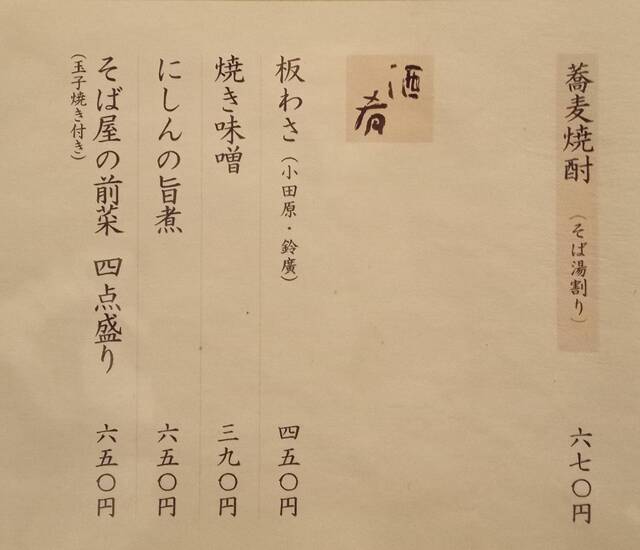 蕎麦焼酎 (そば湯割り) 六七〇円
酒肴
板わさ (小田原・鈴廣) 四五〇円
焼き味噌 三九〇円
にしんの旨煮 六五〇円
そば屋の前菜 四点盛り 六五〇円
(玉子焼き付き)